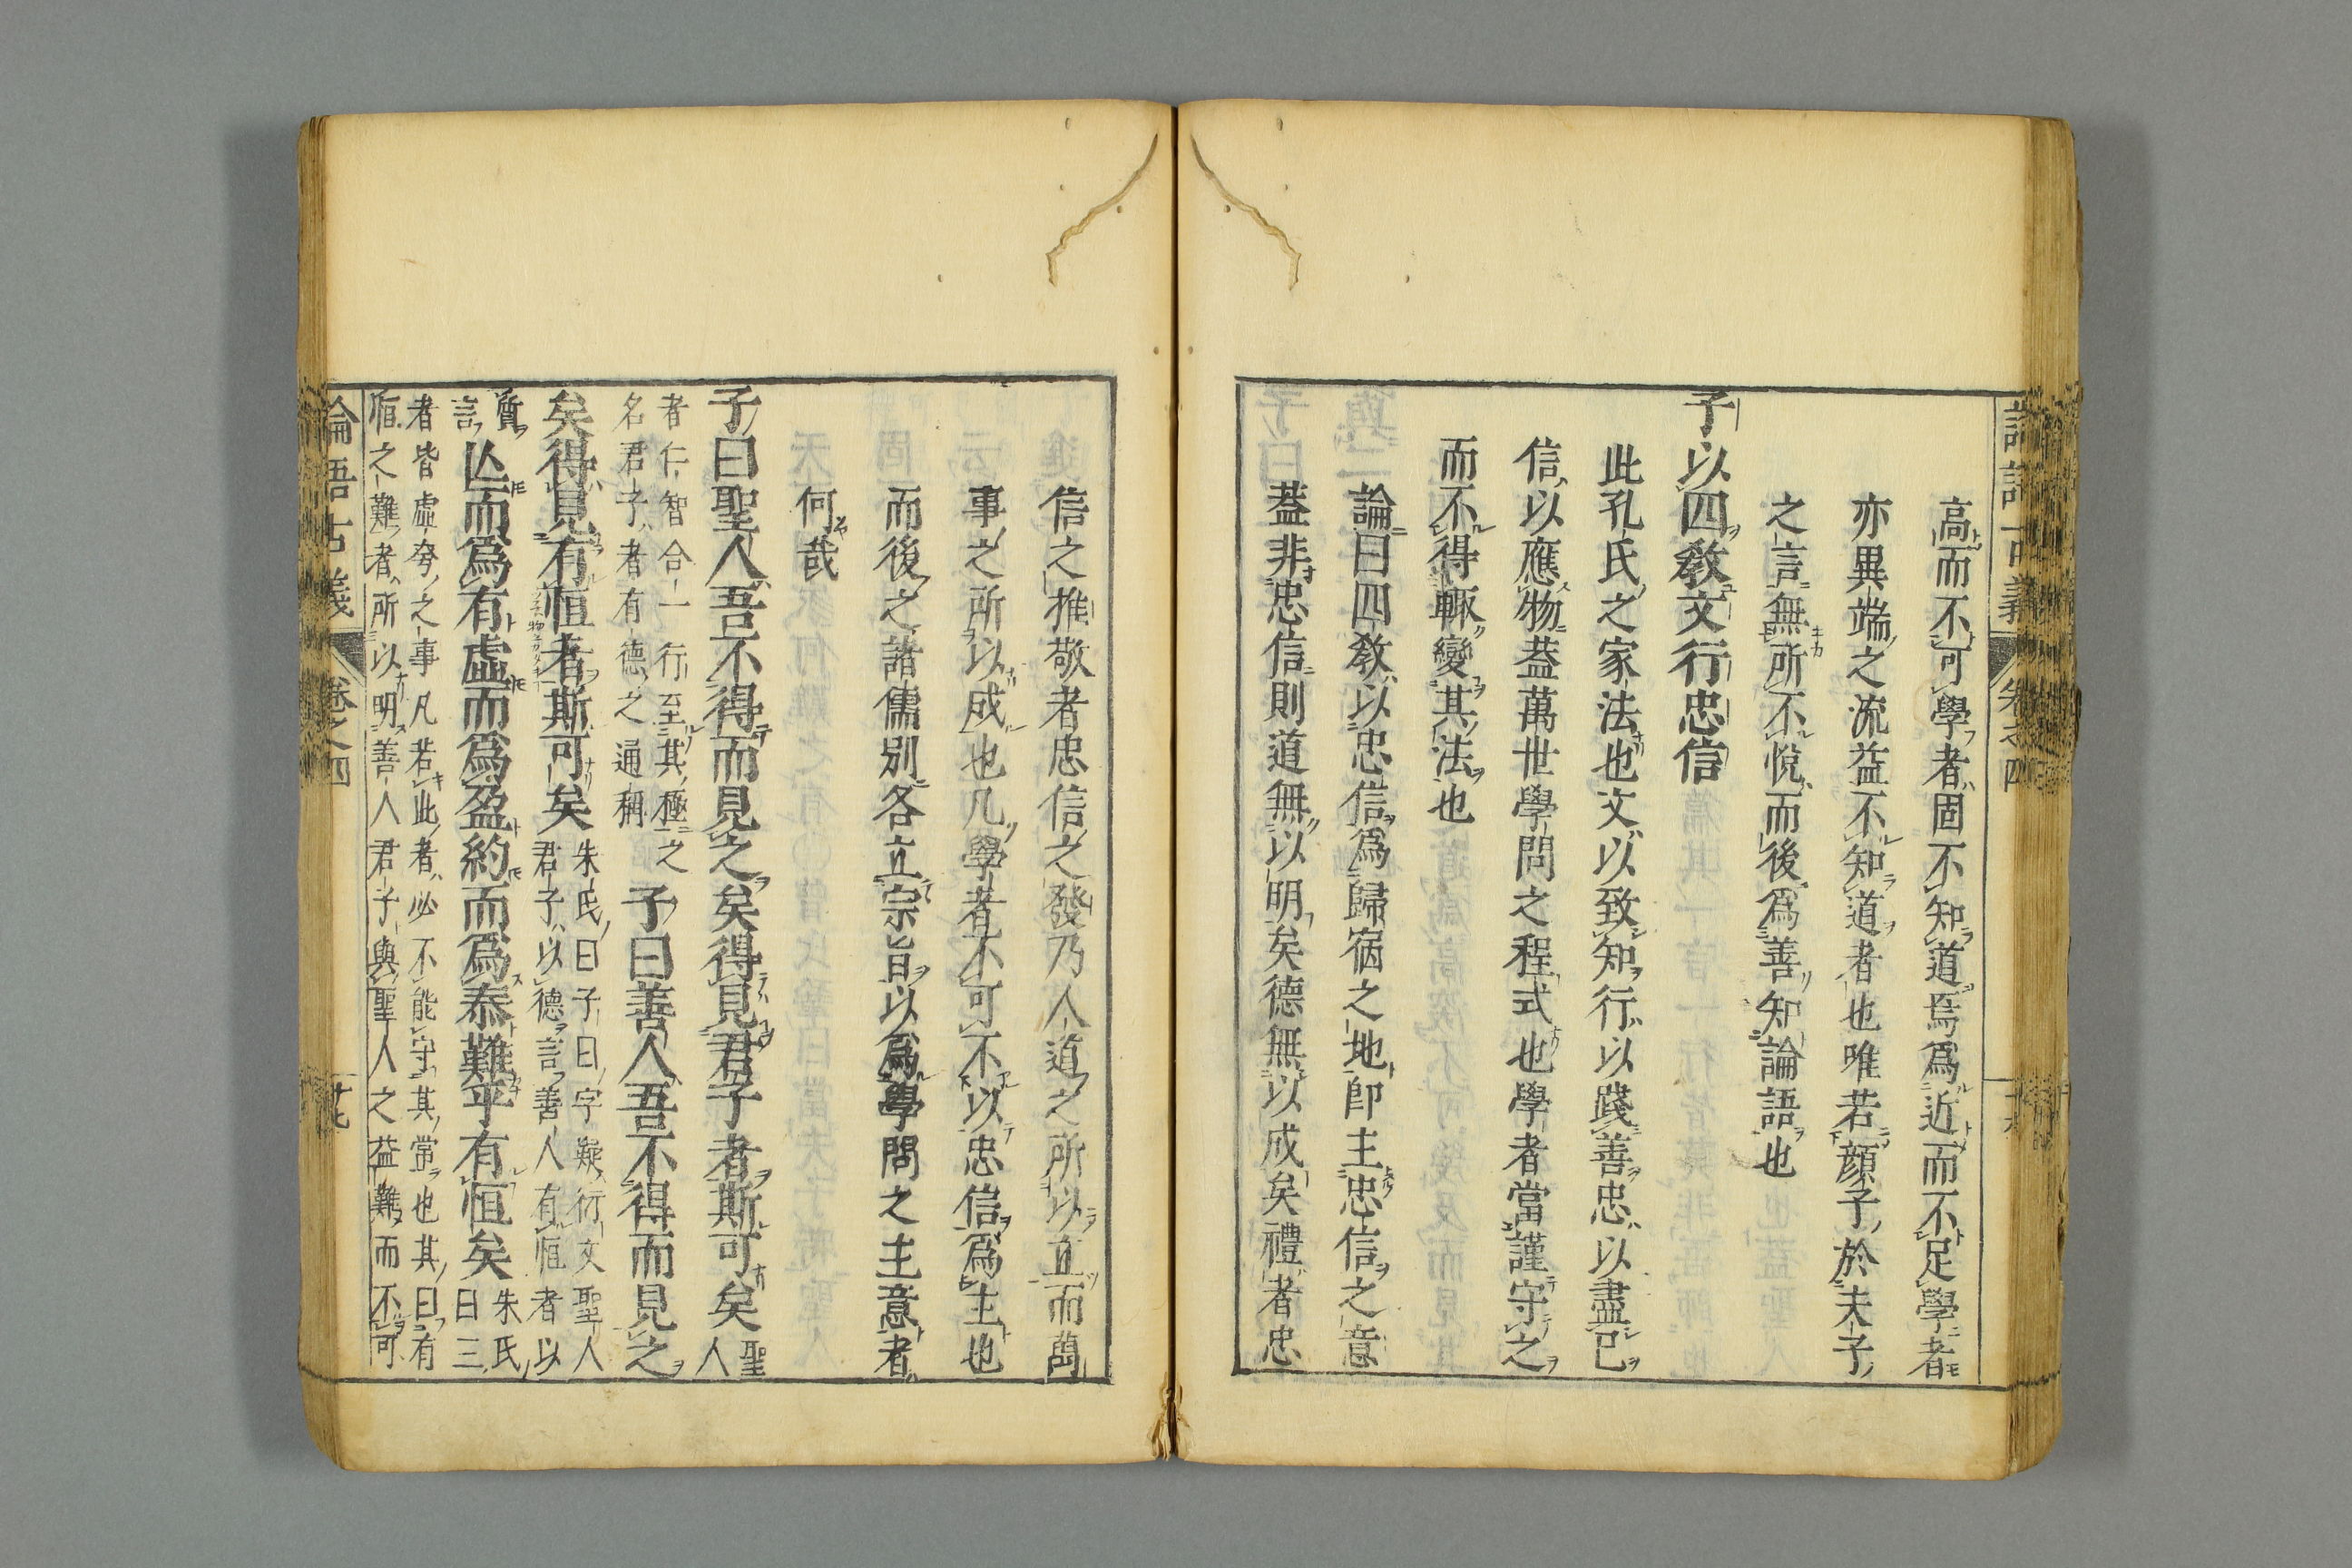 高而不可學者固不知道焉爲近而不足學者
亦異端之流益不知道者也唯若顔子於夫子
之言無所不悅而後爲善知論語也
子以四敎文行忠信
此孔氏之家法也文以致知行以踐善忠以盡己
信以應物葢萬世學問之程式也學者當謹守之
而不得輙變其法也
論曰四敎以忠信爲歸宿之地卽主忠信之意
葢非忠信則道無以明矣德無以成矣禮者忠
信之推敬者忠信之發乃人道之所以立而萬
事之所以成也凡學者不可不以忠信爲主也
而後之諸儒別各立宗旨以爲學問之主意者
何哉
子曰聖人吾不得而見之矣得見君子者斯可矣聖人
者仁智合一行至其極之
名君子者有德之通稱
子曰善人吾不得而見之
矣得見有恒者斯可矣
朱氏曰子曰字疑衍文聖人
君子以德言善人有恒者以
質言
亾而爲有虛而爲盈約而爲泰難乎有恒矣
朱氏曰三
者皆虛夸之事凡若此者必不能守其常也其曰有
恒之難者所以明善人君子與聖人之益難而不可
論語古義
卷之四